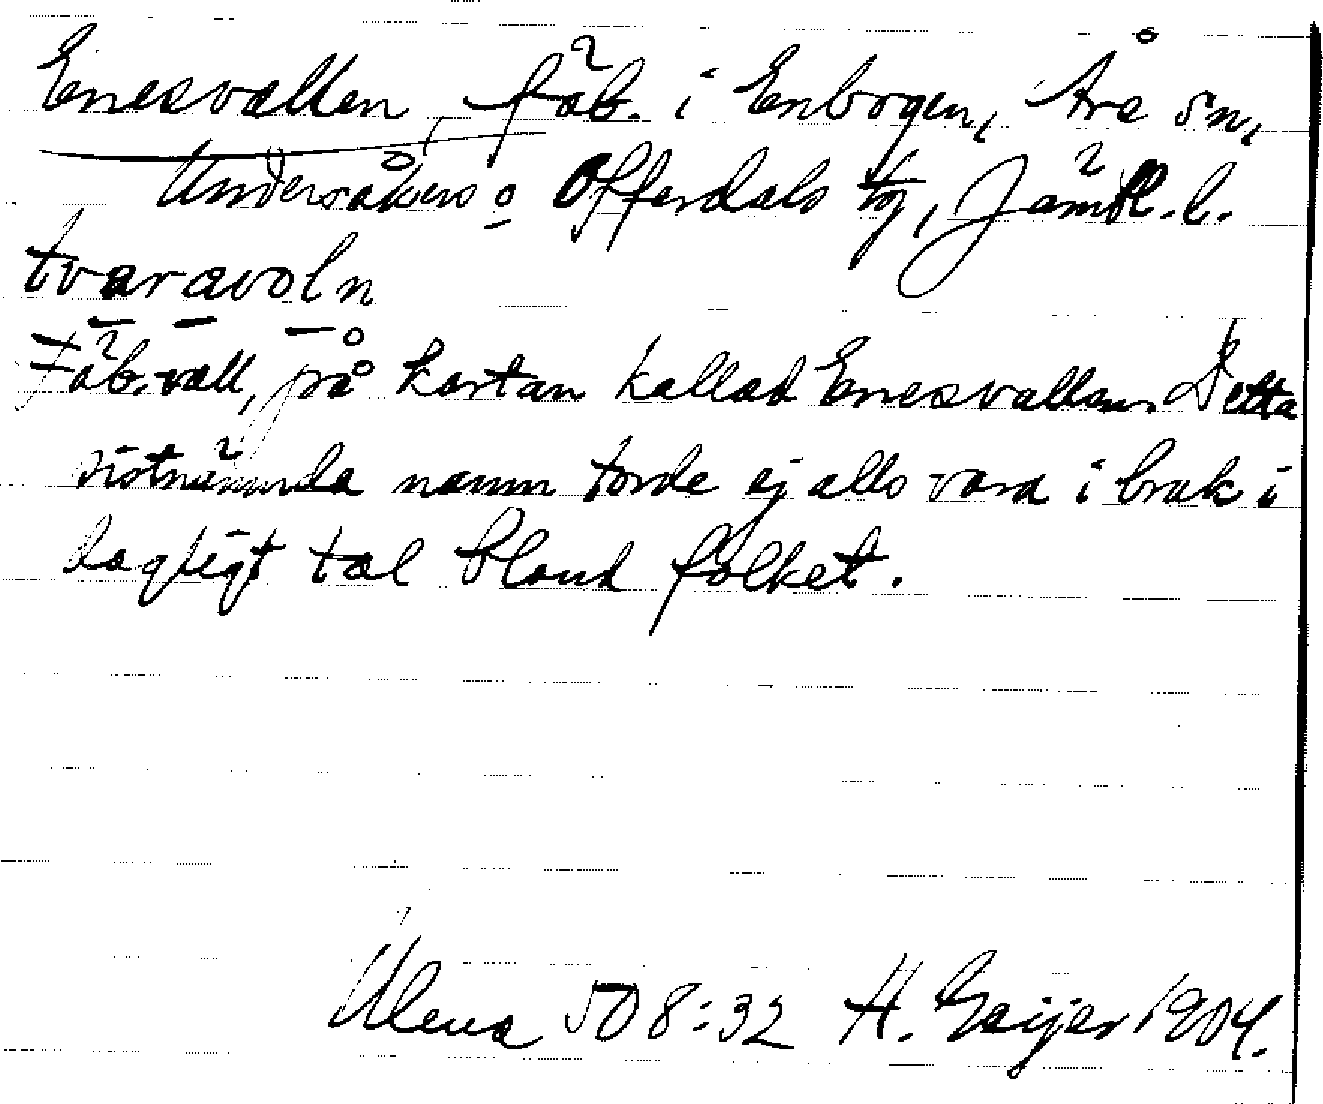 Enesvallen, fäb. i Enbogen, Åre sn,
Undersåkers o Offerdals tg, Jämtl. l.
tvaravoln
Fäb.vall, på kartan kallad Enesvallen. Detta
sistnämnda namn torde ej alls vara i bruk i
dagligt tal bland folket.
Ulma 508:32 H. Geijer 1904.